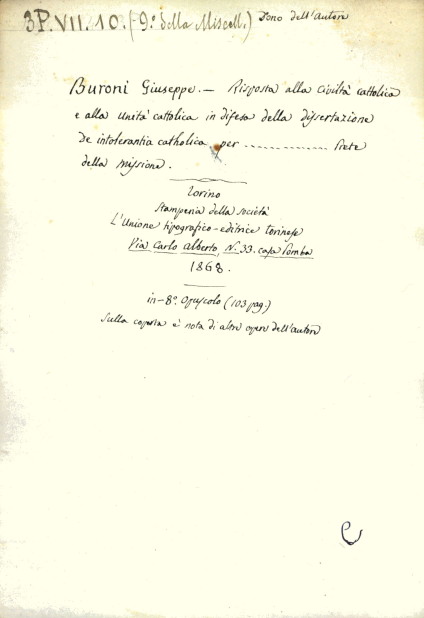 3P.VII.10.(-9º della Miscell.) Dono dell'Autore
Buroni Giuseppe. — Risposta alla Civiltà cattolica
e alla Unità cattolica in difesa della dissertazione
de intolerantia catholica per ............... Prete
della missione.
Torino
Stamperia della società
L'Unione tipografico-editrice torinese
Via Carlo Alberto, N. 33. casa Pomba
1868.
in-8º. Opuscolo (103 pag.)
Sulla coperta è nota di altre opere dell'autore